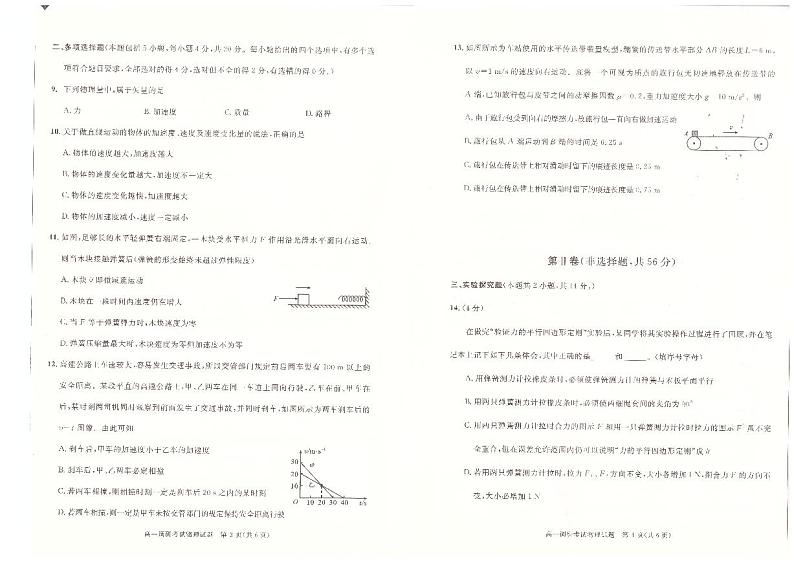 二、多项选择题(本题包括5小题,每小题4分,共20分。每小题给出的四个选项中,有多个选
项符合题目要求,全部选对的得4分,选对但不全的得2分,有选错的得0分。)
9. 下列物理量中,属于矢量的是
A. 力 B. 加速度 C. 质量 D. 路程
10. 关于做直线运动的物体的加速度、速度及速度变化量的说法,正确的是
A. 物体的速度越大,加速度越大
B. 物体的速度变化量越大,加速度不一定大
C. 物体的速度变化越快,加速度越大
D. 物体的加速度减小,速度一定减小
11. 如图,足够长的水平轻弹簧右端固定,一木块受水平恒力F作用沿光滑水平面向右运动,
则当木块接触弹簧后(弹簧的形变始终未超过弹性限度)
A. 木块立即做减速运动
B. 木块在一段时间内速度仍在增大
C. 当F等于弹簧弹力时,木块速度为零
D. 弹簧压缩量最大时,木块速度为零但加速度不为零
F
12. 高速公路上车速较大,容易发生交通事故,所以交管部门规定前后两车要有100 m以上的
安全距离。某段平直的高速公路上,甲、乙两车在同一车道上同向行驶,乙车在前,甲车在
后,某时刻两司机同时观察到前面发生了交通事故,并同时刹车,如图所示为两车刹车后的
v-t图像。由此可知
A. 刹车后,甲车的加速度小于乙车的加速度
B. 刹车后,甲、乙两车必定相撞
C. 若两车相撞,则相撞时刻一定是刹车后20 s之内的某时刻
D. 若两车相撞,一定是甲车未按交管部门的规定保持安全距离行驶
v/m·s⁻¹
30
20
10
甲
乙
O 10 20 30 40 t/s
高一调研考试物理试题 第3页(共6页)
13. 如图所示为车站使用的水平传送带装置模型,绷紧的传送带水平部分AB的长度L=6 m,
以v=1 m/s的速度向右运动。现将一个可视为质点的旅行包无初速地轻放在传送带的
A端,已知旅行包与皮带之间的动摩擦因数μ=0.2,重力加速度大小g=10 m/s²。则
A. 由于旅行包受到向右的摩擦力,故旅行包一直向右做加速运动
B. 旅行包从A端运动到B端的时间是6.25 s
C. 旅行包在传送带上相对滑动时留下的痕迹长度是0.25 m
D. 旅行包在传送带上相对滑动时留下的痕迹长度是0.75 m
A v B
第Ⅱ卷(非选择题,共56分)
三、实验探究题(本题共2小题,共14分。)
14. (4分)
在做完“验证力的平行四边形定则”实验后,某同学将其实验操作过程进行了回顾,并在笔
记本上记下如下几条体会,其中正确的是 和 。(填序号字母)
A. 用弹簧测力计拉橡皮条时,必须使弹簧测力计的弹簧与木板平面平行
B. 用两只弹簧测力计拉橡皮条时,必须使两细绳套间的夹角为90°
C. 用两只弹簧测力计拉时合力的图示F和用一只弹簧测力计拉时拉力的图示F′虽不完
全重合,但在误差允许范围内仍可以说明“力的平行四边形定则”成立
D. 若用两只弹簧测力计拉时,拉力F₁、F₂方向不变,大小各增加1 N,则合力F的方向不
变,大小必增加1 N
高一调研考试物理试题 第4页(共6页)